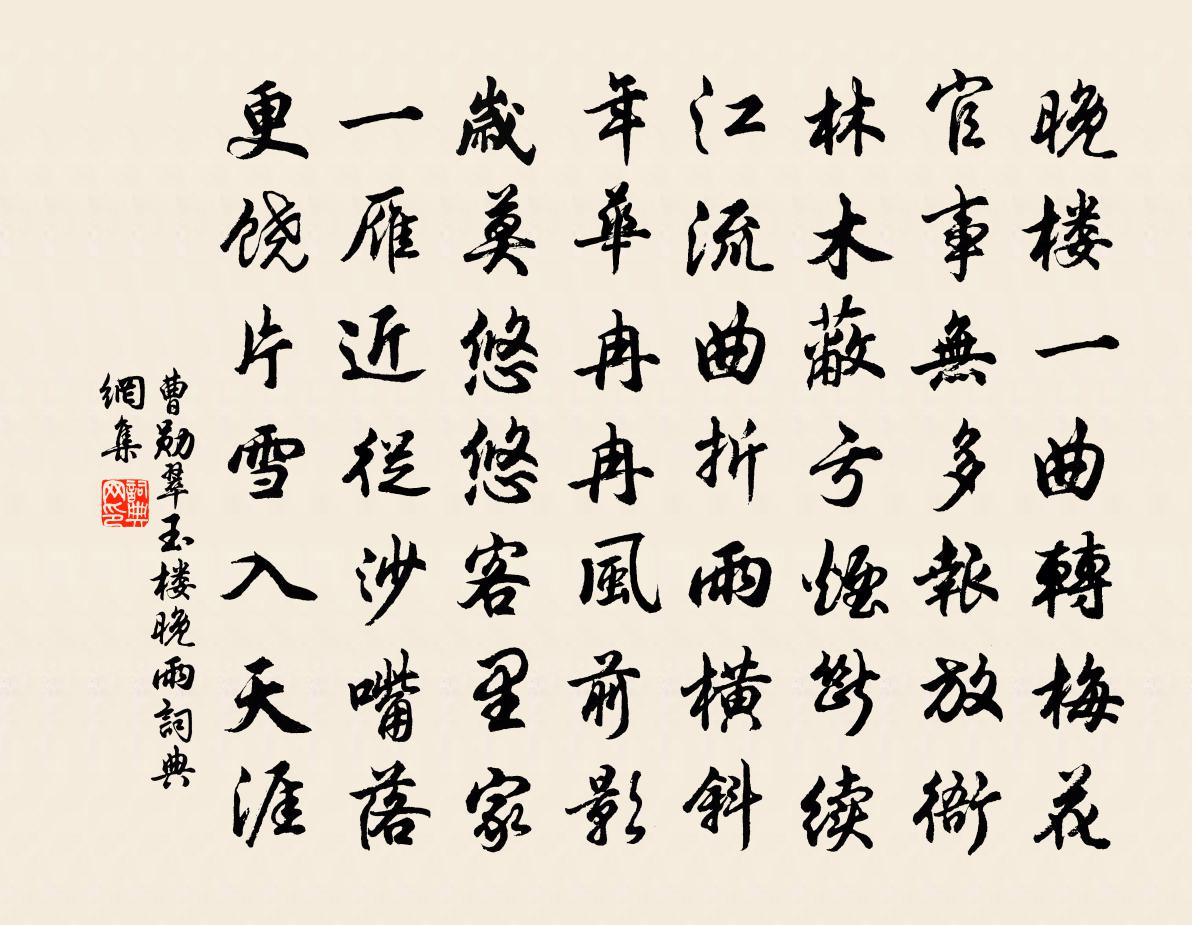 晚楼一曲轉梅花
官事無多報放衙
林木蔽亏煙断续
江流曲折雨横斜
年華冉冉風前影
歲莫悠悠客里家
一雁近從沙嘴落
更饶片雪入天涯
曹勛翠玉楼晚雨詞典
網集
詞典
网印